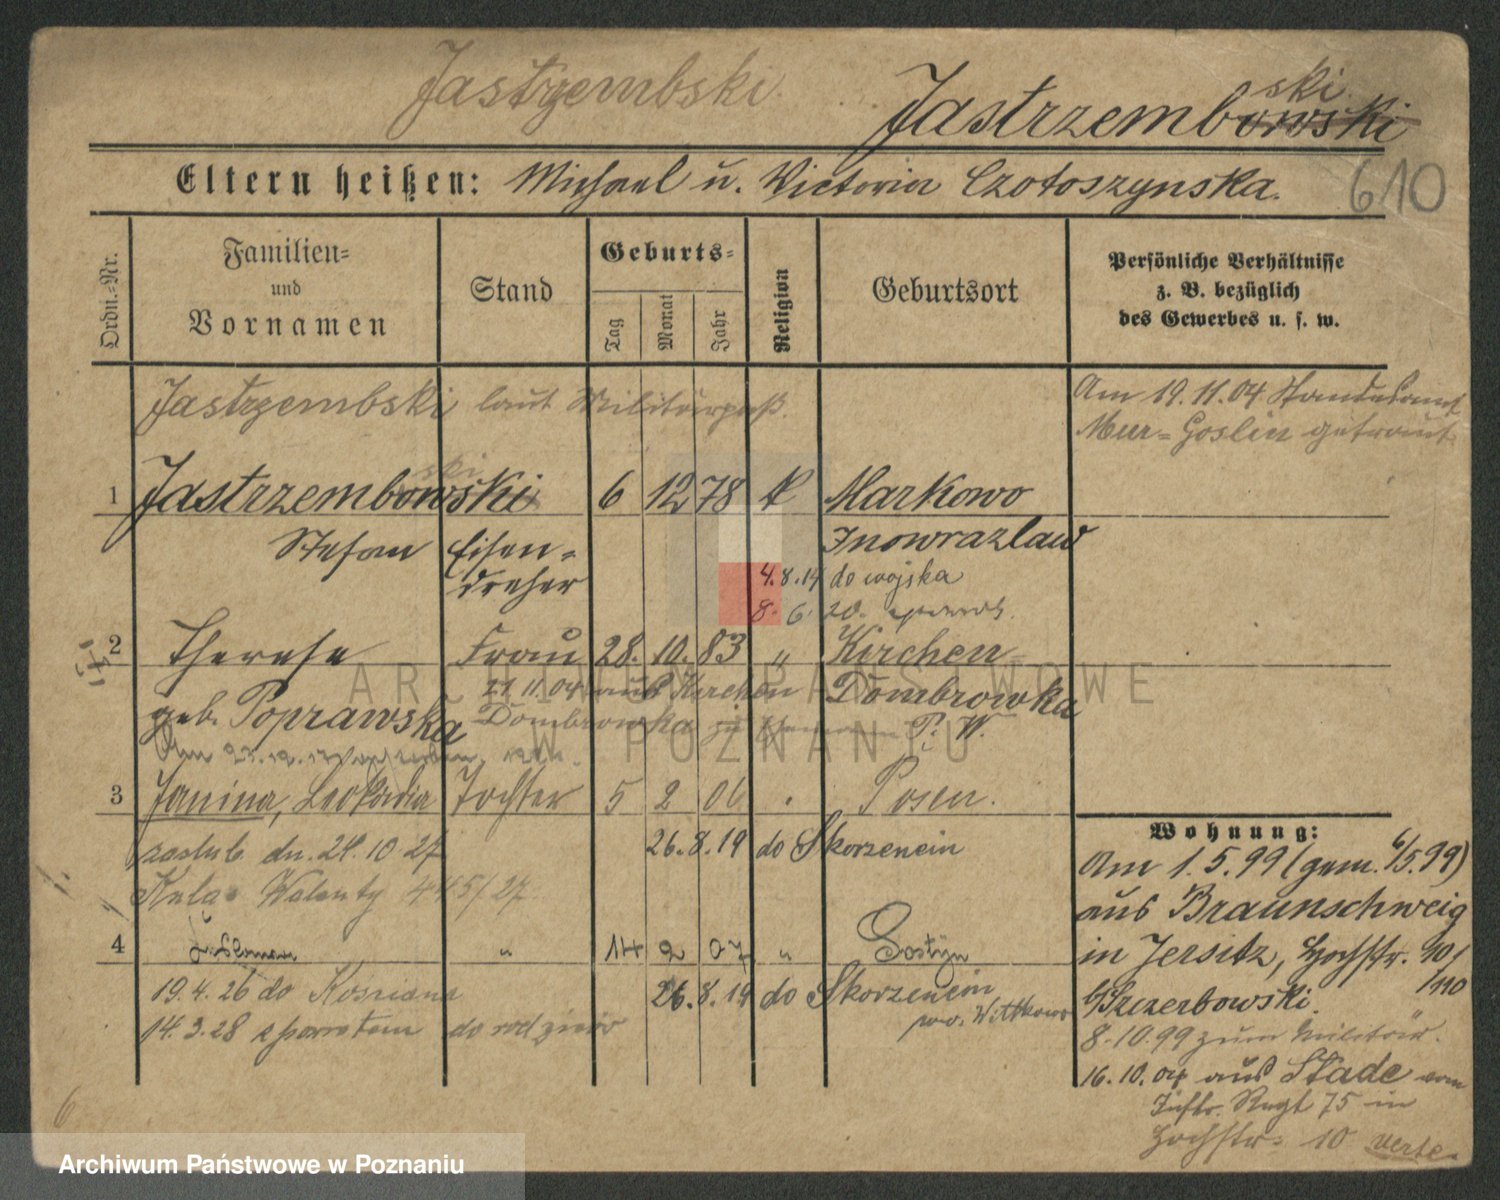 Jastrzembski
ski
Jastrzembowski
Eltern heißen: Michael u. Victoria Czotoszynska.
610
Ordn.-Nr.
Familien-
und
Vornamen
Stand
Geburts-
Tag
Monat
Jahr
Religion
Geburtsort
Persönliche Verhältnisse
z. B. bezüglich
des Gewerbes u. s. w.
Jastrzembski laut Militärpaß.
Am 19.11.04 Standesamt
Mur-Goslin getraut
ski
1 Jastrzembowski 6 12 78 k Markowo
Stefan Eisen- Inowrazlaw
dreher 4.8.14 do wojska
8. 6. 20.
2 Therese Frau 28. 10. 83 " Kirchen
21.11.04 aus Kirchen Dombrowka
geb. Poprawska Dombrowka P. W.
3 Janina, Leokadia Tochter 5 2 06 " Posen.
zaslub. dn. 24.10 27 26.8.19 do Skorzencin
Walenty 445/27
4 " 14 2 07 " Gostyn
19.4.26 do 26.8.19 do Skorzencin
pow. Wittkowo
14.3.28 z powrotem do rodziców
Wohnung:
Am 1.5.99 (gem. 6/5.99)
aus Braunschweig
in Jersitz, Hochstr. 10/
/110
b/Szczerbowski.
8.10.99 zum Militär.
16.10.04 aus Stade vom
Inftr. Regt 75 in
Hochstr. 10 verte.
6
ARCHIWUM PAŃSTWOWE
W POZNANIU
Archiwum Państwowe w Poznaniu